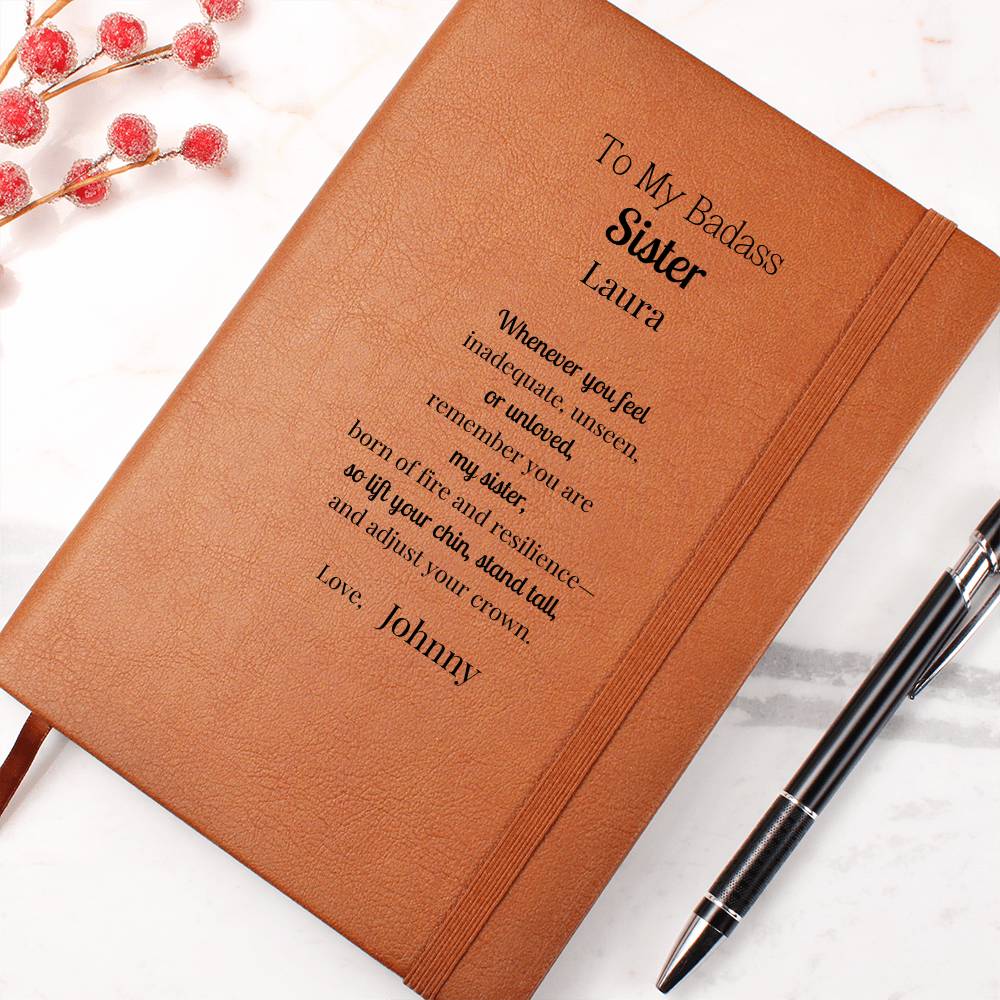 To My Badass
Sister
Laura
Whenever you feel
inadequate, unseen,
or unloved,
remember you are
my sister,
born of fire and resilience—
so lift your chin, stand tall,
and adjust your crown.
Love, Johnny